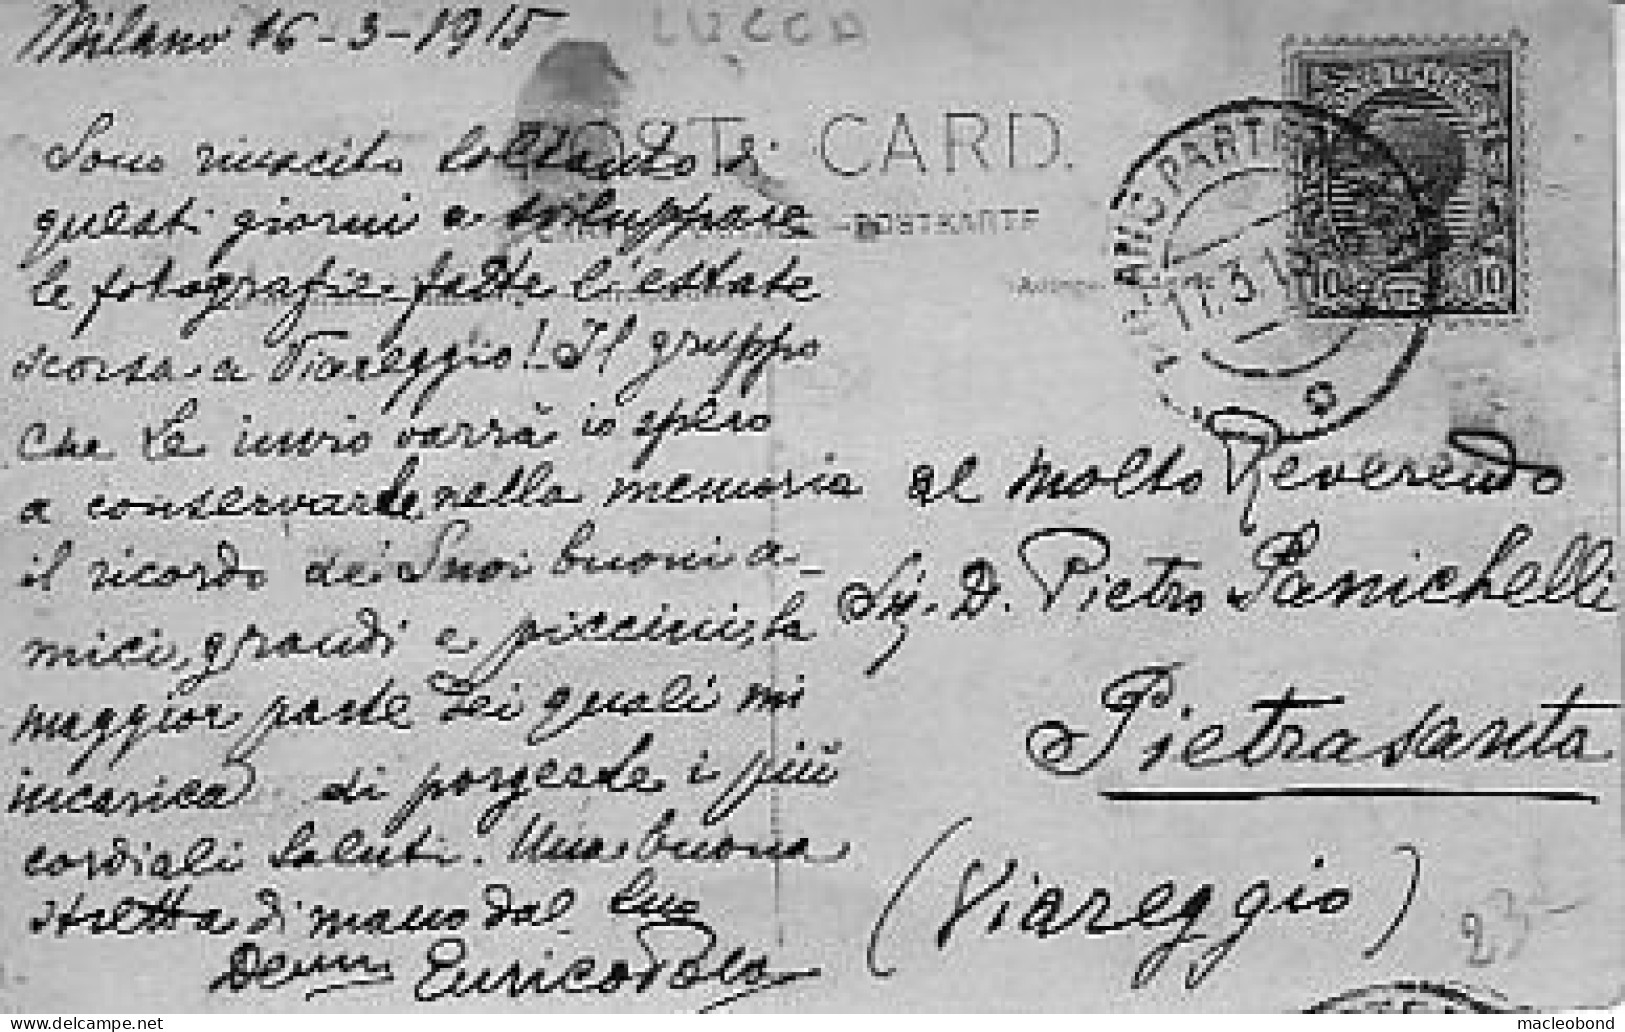 Milano 16-3-1915
LUCCA
POST CARD.
POSTKARTE
Sono riuscito soltanto di
questi giorni a sviluppare
le fotografie fatte l'estate
scorsa a Viareggio! Il gruppo
che Le invio varrà io spero
a conservarLe nella memoria
il ricordo dei Suoi buoni a-
mici, grandi e piccini, la
maggior parte dei quali mi
incarica di porgerLe i più
cordiali saluti. Una buona
stretta di mano dal Suo
Dev.mo Enrico Pola
MILANO PARTENZA
3
10 10
al Molto Reverendo
Sig. D. Pietro Panichelli
Pietrasanta
(Viareggio)
23-
macleobond